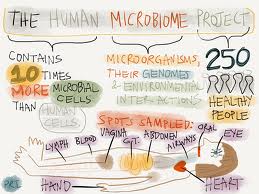 THE HUMAN MICROBIOME PROJECT
CONTAINS
10 TIMES
MORE MICROBIAL
CELLS
THAN HUMAN
CELLS
MICROORGANISMS,
THEIR GENOMES
& ENVIRONMENTAL
INTERACTIONS
250
HEALTHY
PEOPLE
SPOTS SAMPLED:
LYMPH BLOOD VAGINA G.T. ABDOMEN AIRWAYS ORAL EYE
HAND
HEART